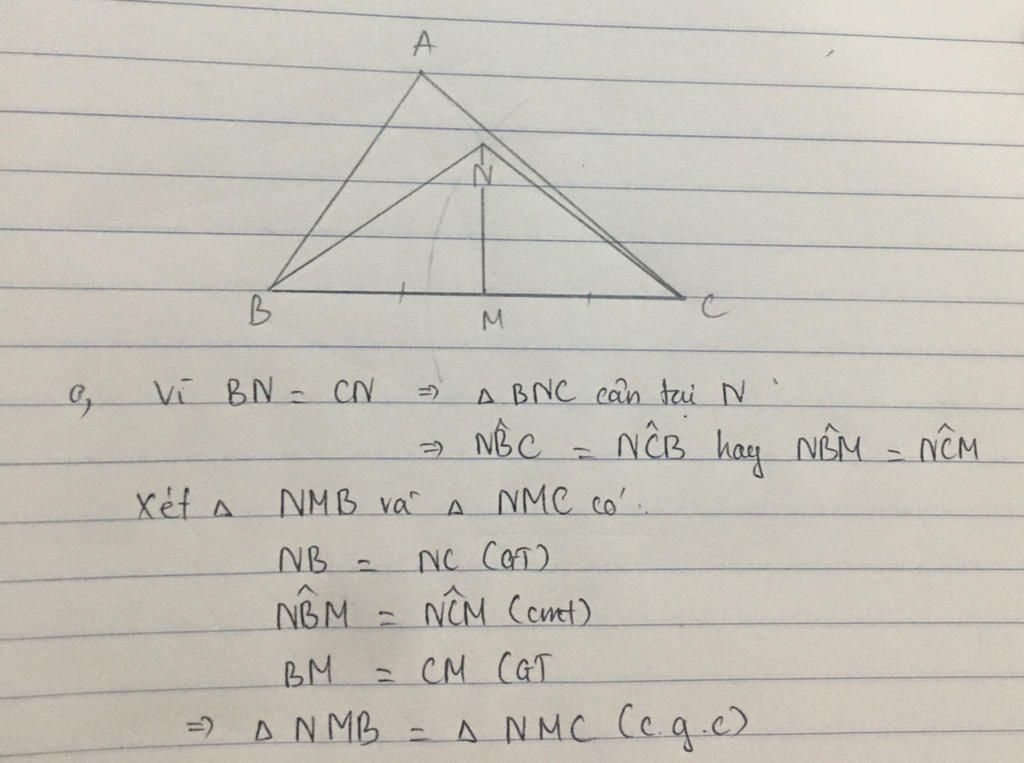 A
N
B
M
C
a, Vì BN = CN => Δ BNC cân tại N
=> NB̂C = NĈB hay NB̂M = NĈM
Xét Δ NMB và Δ NMC có:
NB = NC (GT)
NB̂M = NĈM (cmt)
BM = CM (GT
=> Δ NMB = Δ NMC (c.g.c)